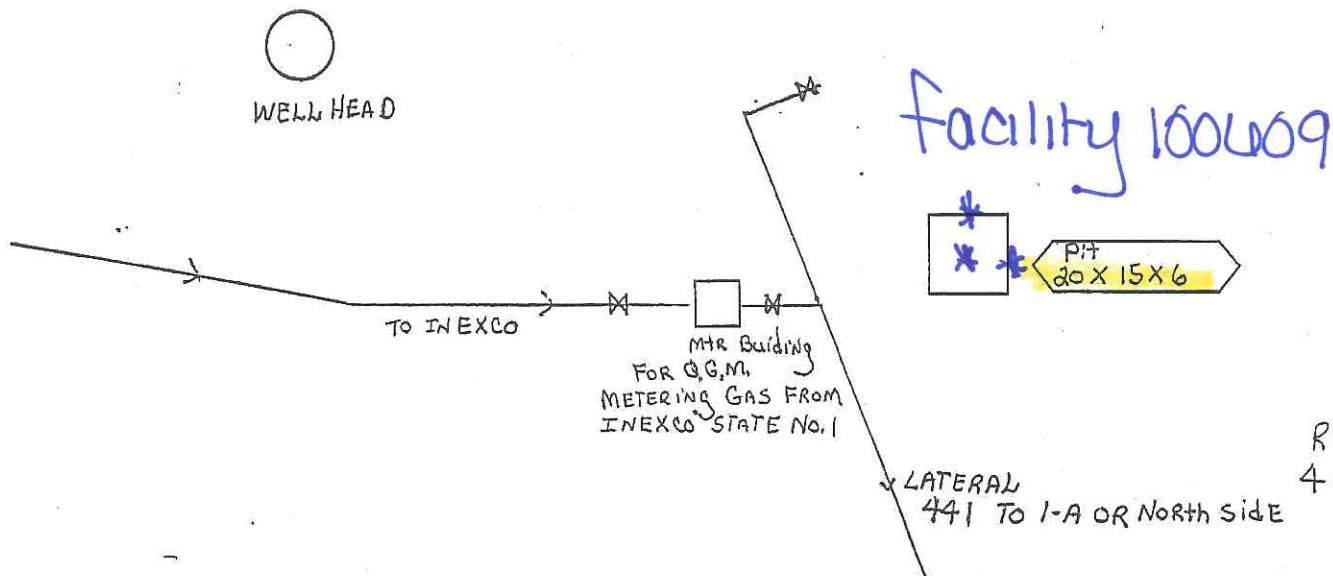 WELL HEAD
facility 100409
Pit
20 X 15 X 6
TO INEXCO
Mtr Buiding
FOR Q.G.M.
METERING GAS FROM
INEXCO STATE No. 1
R
4
LATERAL
441 TO 1-A OR North Side